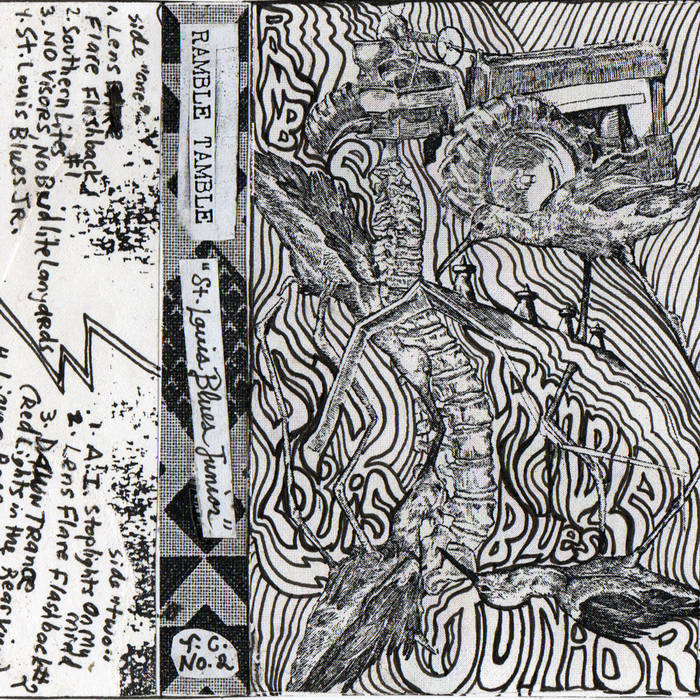 side "one"
1. Lens
Flare Flashback
2. Southern Lites #1
3. NO VISORS, No Bud lite Lanyards
4. St. Louis Blues JR.
side "two"
1. A.I. Stoplights On My
Mind
2. Lens Flare Flashback #2
3. DAWN TRANCE
(Red Lights in the
RAMBLE TAMBLE
"St. Louis Blues Junior"
Y.C.
No. 2
LOUIS
BLUES
JUNIOR